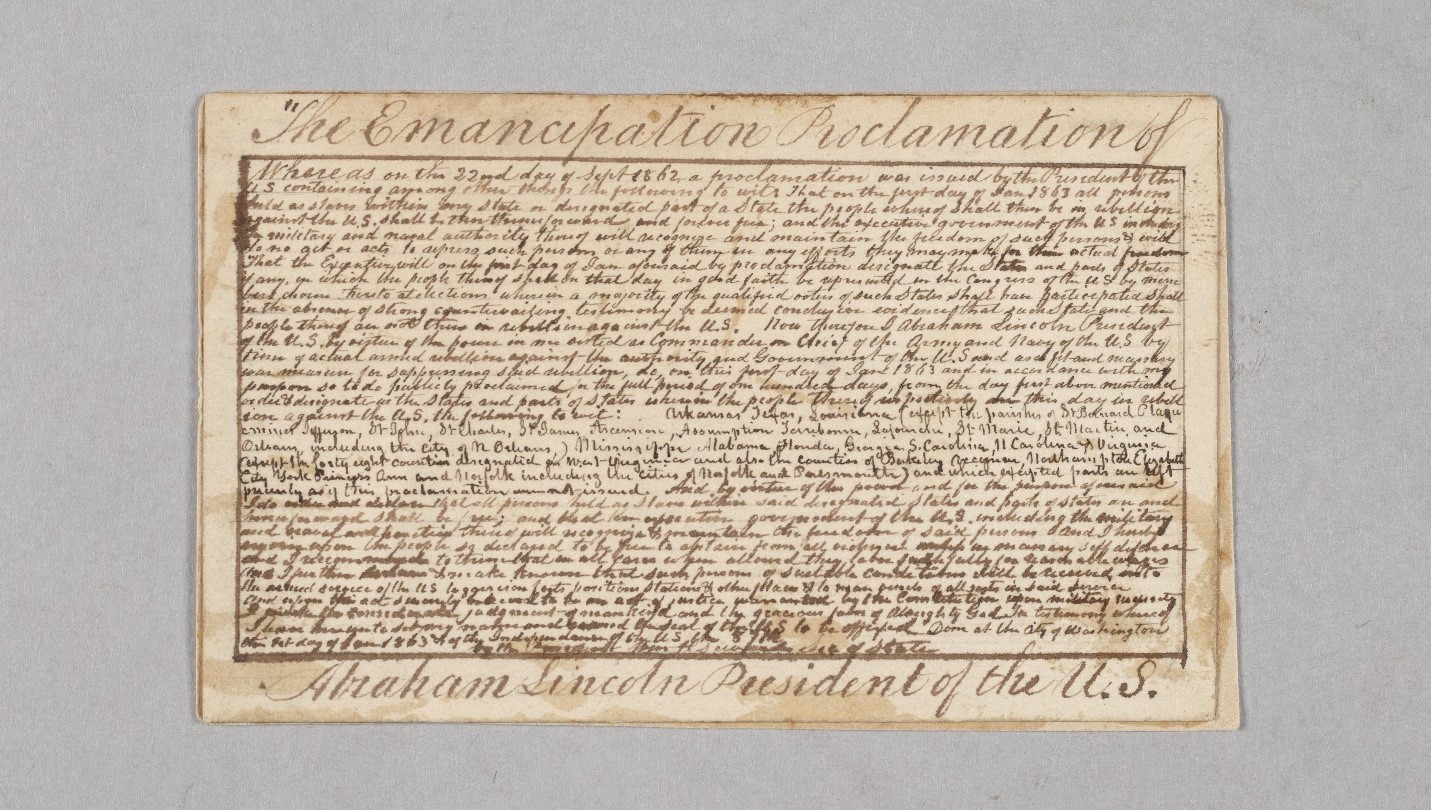 "The Emancipation Proclamation of
Whereas on the 22nd day of Sept 1862 a proclamation was issued by the President of the
U S containing among other things the following to wit: That on the first day of Jan 1863 all persons
held as slaves within any State or designated part of a State the people whereof shall then be in rebellion
against the U.S. shall be then thenceforward and forever free; and the executive government of the U S including
the military and naval authority thereof will recognize and maintain the freedom of such persons & will
do no act or acts to repress such persons or any of them in any efforts they may make for their actual freedom
That the Executive will on the first day of Jan aforesaid by proclamation designate the States and parts of States
if any, in which the people thereof shall on that day in good faith be represented in the Congress of the U S by men
chosen thereto at elections wherein a majority of the qualified voters of such States shall have participated shall
in the absence of strong countervailing testimony be deemed conclusive evidence that such State and the
people thereof are not then in rebellion against the U.S. Now therefore I Abraham Lincoln President
of the U.S. by virtue of the power in me vested as Commander in Chief of the Army and Navy of the U.S by
time of actual armed rebellion against the authority and Government of the U.S and as a fit and necessary
war measure for suppressing said rebellion, do, on this first day of Jan 1863 and in accordance with my
purpose so to do publicly proclaimed for the full period of one hundred days, from the day first above mentioned
order & designate as the States and parts of States wherein the people thereof respectively are this day in rebell
ion against the U.S. the following to wit: Arkansas Texas, Louisiana (except the parishes of St Bernard Plaqu
emines Jefferson, St John, St Charles, St James Ascension, Assumption Terrebonne, Lafourche, St Marie, St Martin, and
Orleans, including the City of N Orleans,) Mississippi, Alabama Florida, Georgia, S. Carolina, N Carolina & Virginia
(except the forty eight counties designated as West Virginia and also the counties of Berkeley Northampton Elizabeth
City York Princess Ann and Norfolk including the cities of Norfolk and Portsmouth) and which excepted parts are left
precisely as if this proclamation were not issued. And by virtue of the power and for the purpose aforesaid
I do order and declare that all persons held as slaves within said designated States and parts of States are and
henceforward shall be free; and that the executive government of the U.S. including the military
and naval authorities thereof will recognize & maintain the freedom of said persons And I hereby
enjoin upon the people so declared to be free to abstain from all violence
and I recommend to them that in all cases when allowed they labor faithfully for reasonable wages
And I further make known that such persons of suitable condition will be received into
the armed service of the U S to garrison forts positions stations & other places & to man vessels of all sorts in said service
And upon this act sincerely believed to be an act of justice warranted by the Constitution upon military necessity
I invoke the considerate judgment of mankind and the gracious favor of Almighty God In testimony whereof
I have hereunto set my name and the seal of the U S to be affixed Done at the City of Washington
the 1st day of Jan 1863 & of the Independence of the U S. the 87th
by the President Wm H Seward Sec of State
Abraham Lincoln President of the U.S.